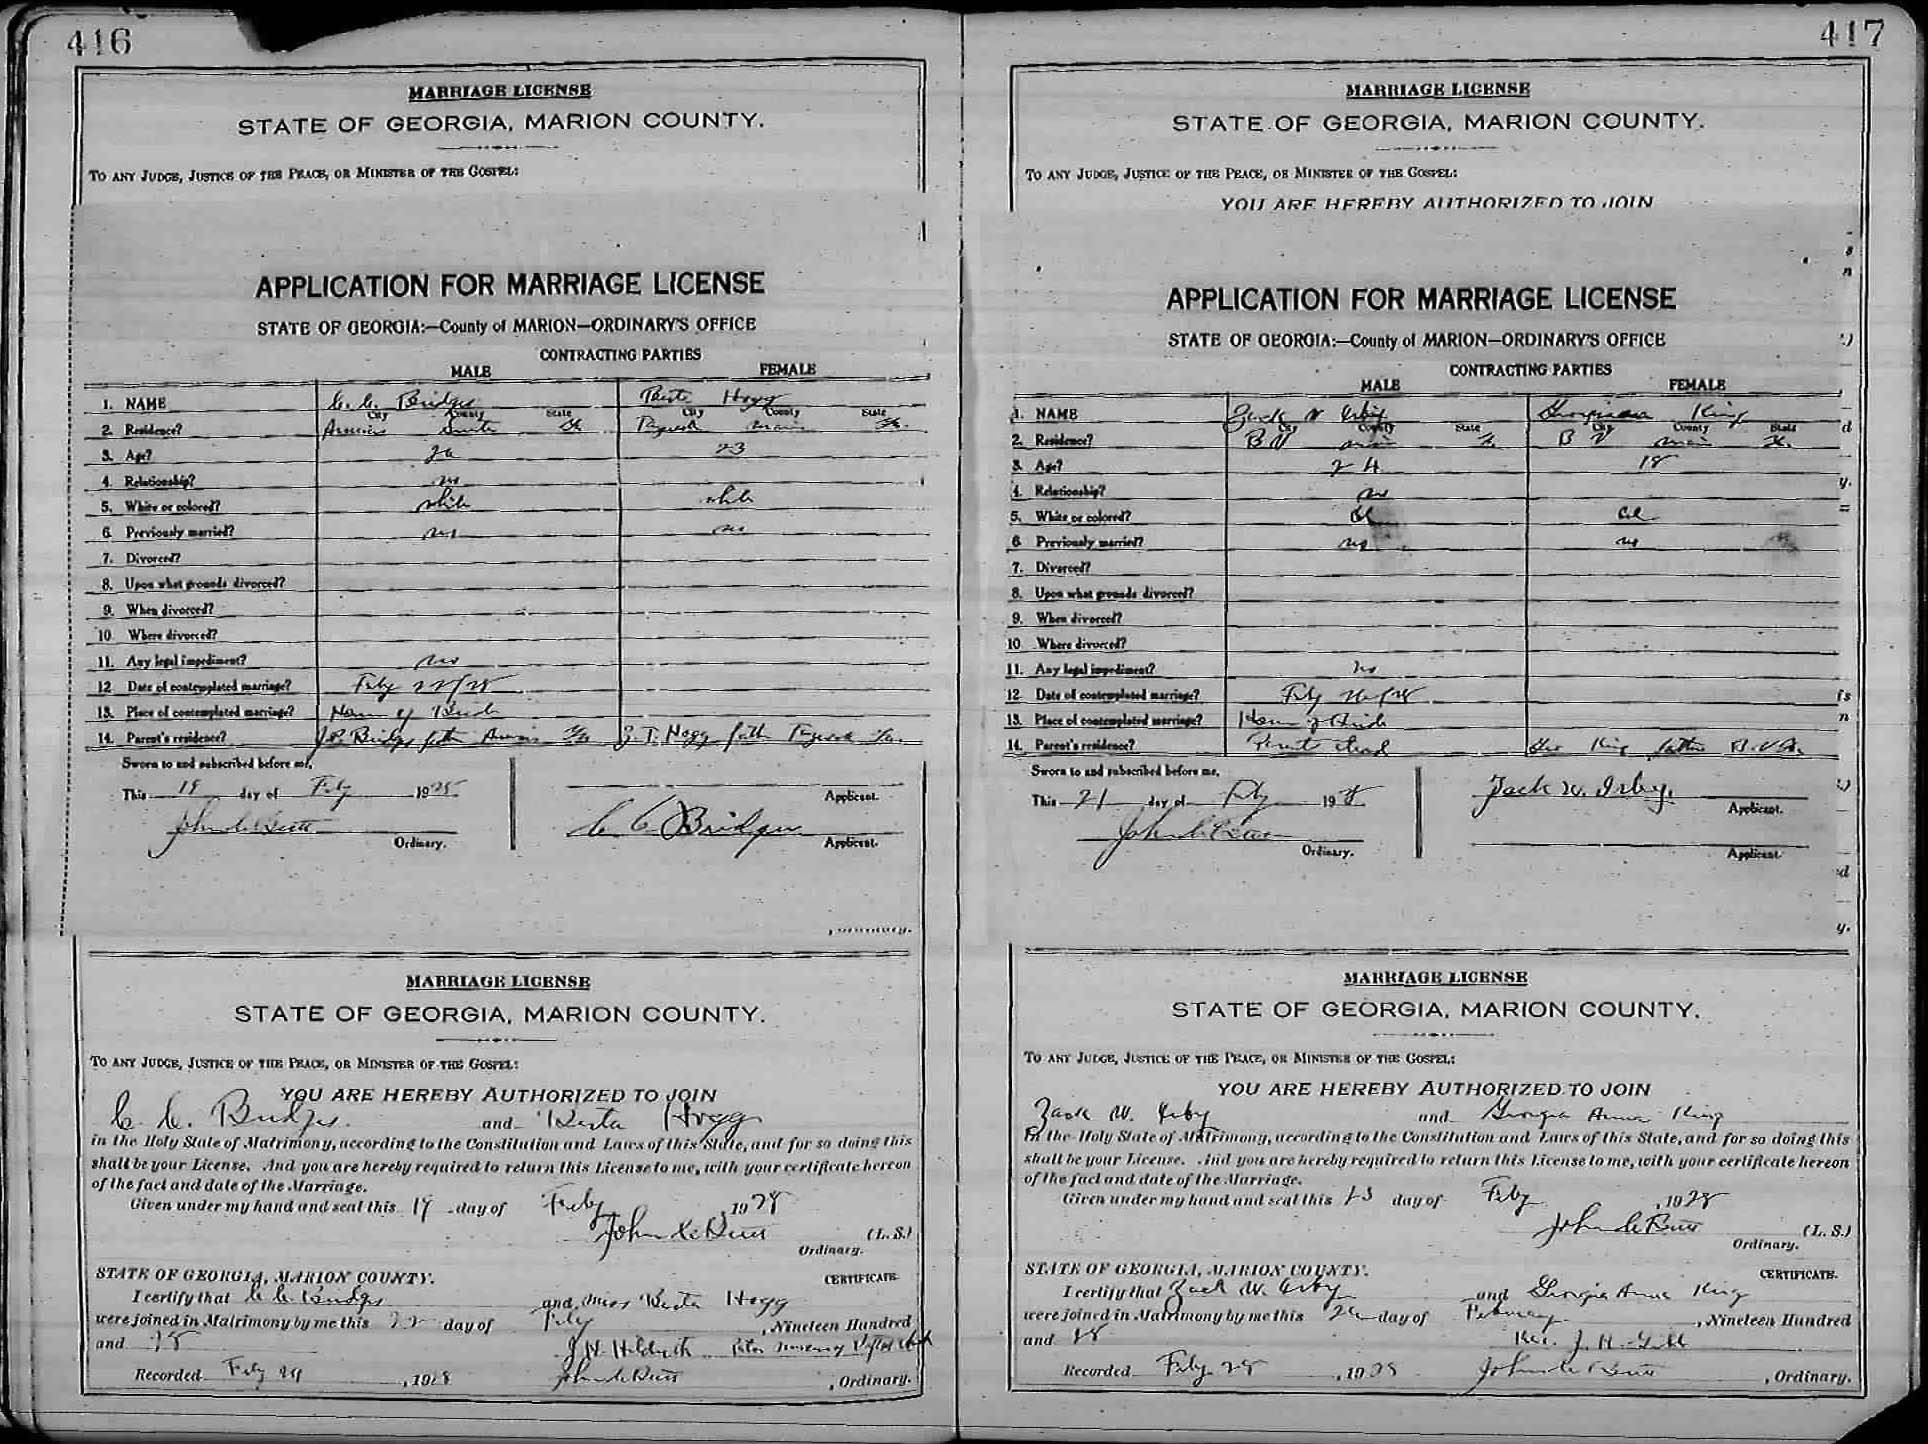 416
MARRIAGE LICENSE
STATE OF GEORGIA, MARION COUNTY.
TO ANY JUDGE, JUSTICE OF THE PEACE, OR MINISTER OF THE GOSPEL:
APPLICATION FOR MARRIAGE LICENSE
STATE OF GEORGIA:—County of MARION—ORDINARY'S OFFICE
CONTRACTING PARTIES
MALE FEMALE
1. NAME C. C. Bridges Hogg
City County State City County State
2. Residence? Ga Ga.
3. Age? 23
4. Relationship? no
5. White or colored? white white
6. Previously married? no no
7. Divorced?
8. Upon what grounds divorced?
9. When divorced?
10. Where divorced?
11. Any legal impediment? no
12. Date of contemplated marriage? Feby 22/28
13. Place of contemplated marriage? Home of Bride
14. Parent's residence? Bridges father Hogg father
Sworn to and subscribed before me,
This day of Feby 1928
Applicant.
John C. Butt
Ordinary.
C C Bridges
Applicant.
Ordinary.
MARRIAGE LICENSE
STATE OF GEORGIA, MARION COUNTY.
TO ANY JUDGE, JUSTICE OF THE PEACE, OR MINISTER OF THE GOSPEL:
YOU ARE HEREBY AUTHORIZED TO JOIN
C. C. Bridges. and Hogg
in the Holy State of Matrimony, according to the Constitution and Laws of this State, and for so doing this
shall be your License. And you are hereby required to return this License to me, with your certificate hereon
of the fact and date of the Marriage.
Given under my hand and seal this day of Feby, 1928
John C Butt (L. S.)
Ordinary.
STATE OF GEORGIA, MARION COUNTY. CERTIFICATE.
I certify that C C Bridges and Miss Hogg
were joined in Matrimony by me this 22 day of Feby, Nineteen Hundred
and 28
J. H.
Recorded Feby, 1928 John C Butt, Ordinary.
417
MARRIAGE LICENSE
STATE OF GEORGIA, MARION COUNTY.
TO ANY JUDGE, JUSTICE OF THE PEACE, OR MINISTER OF THE GOSPEL:
YOU ARE HEREBY AUTHORIZED TO JOIN
APPLICATION FOR MARRIAGE LICENSE
STATE OF GEORGIA:—County of MARION—ORDINARY'S OFFICE
CONTRACTING PARTIES
MALE FEMALE
1. NAME Zack W Irby King
City County State City County State
2. Residence? B V Ga. B V Ga.
3. Age? 24 18
4. Relationship? no
5. White or colored? Col Col
6 Previously married? no no
7. Divorced?
8. Upon what grounds divorced?
9. When divorced?
10 Where divorced?
11. Any legal impediment? no
12 Date of contemplated marriage? Feby 26/28
13. Place of contemplated marriage? Home of Bride
14. Parent's residence? Parents dead Geo King father B.V Ga.
Sworn to and subscribed before me,
This 21 day of Feby 1928
Zack W. Irby.
Applicant.
John C Butt
Ordinary.
Applicant.
MARRIAGE LICENSE
STATE OF GEORGIA, MARION COUNTY.
TO ANY JUDGE, JUSTICE OF THE PEACE, OR MINISTER OF THE GOSPEL:
YOU ARE HEREBY AUTHORIZED TO JOIN
Zack W. Irby and Georgia Anna King
in the Holy State of Matrimony, according to the Constitution and Laws of this State, and for so doing this
shall be your License. And you are hereby required to return this License to me, with your certificate hereon
of the fact and date of the Marriage.
Given under my hand and seal this day of Feby, 1928
John C Butt (L. S.)
Ordinary.
STATE OF GEORGIA, MARION COUNTY. CERTIFICATE.
I certify that Zack W. Irby and Georgia Anna King
were joined in Matrimony by me this 26 day of February, Nineteen Hundred
and 28 Rev. J. H.
Recorded Feby 28, 1928 John C Butt, Ordinary.